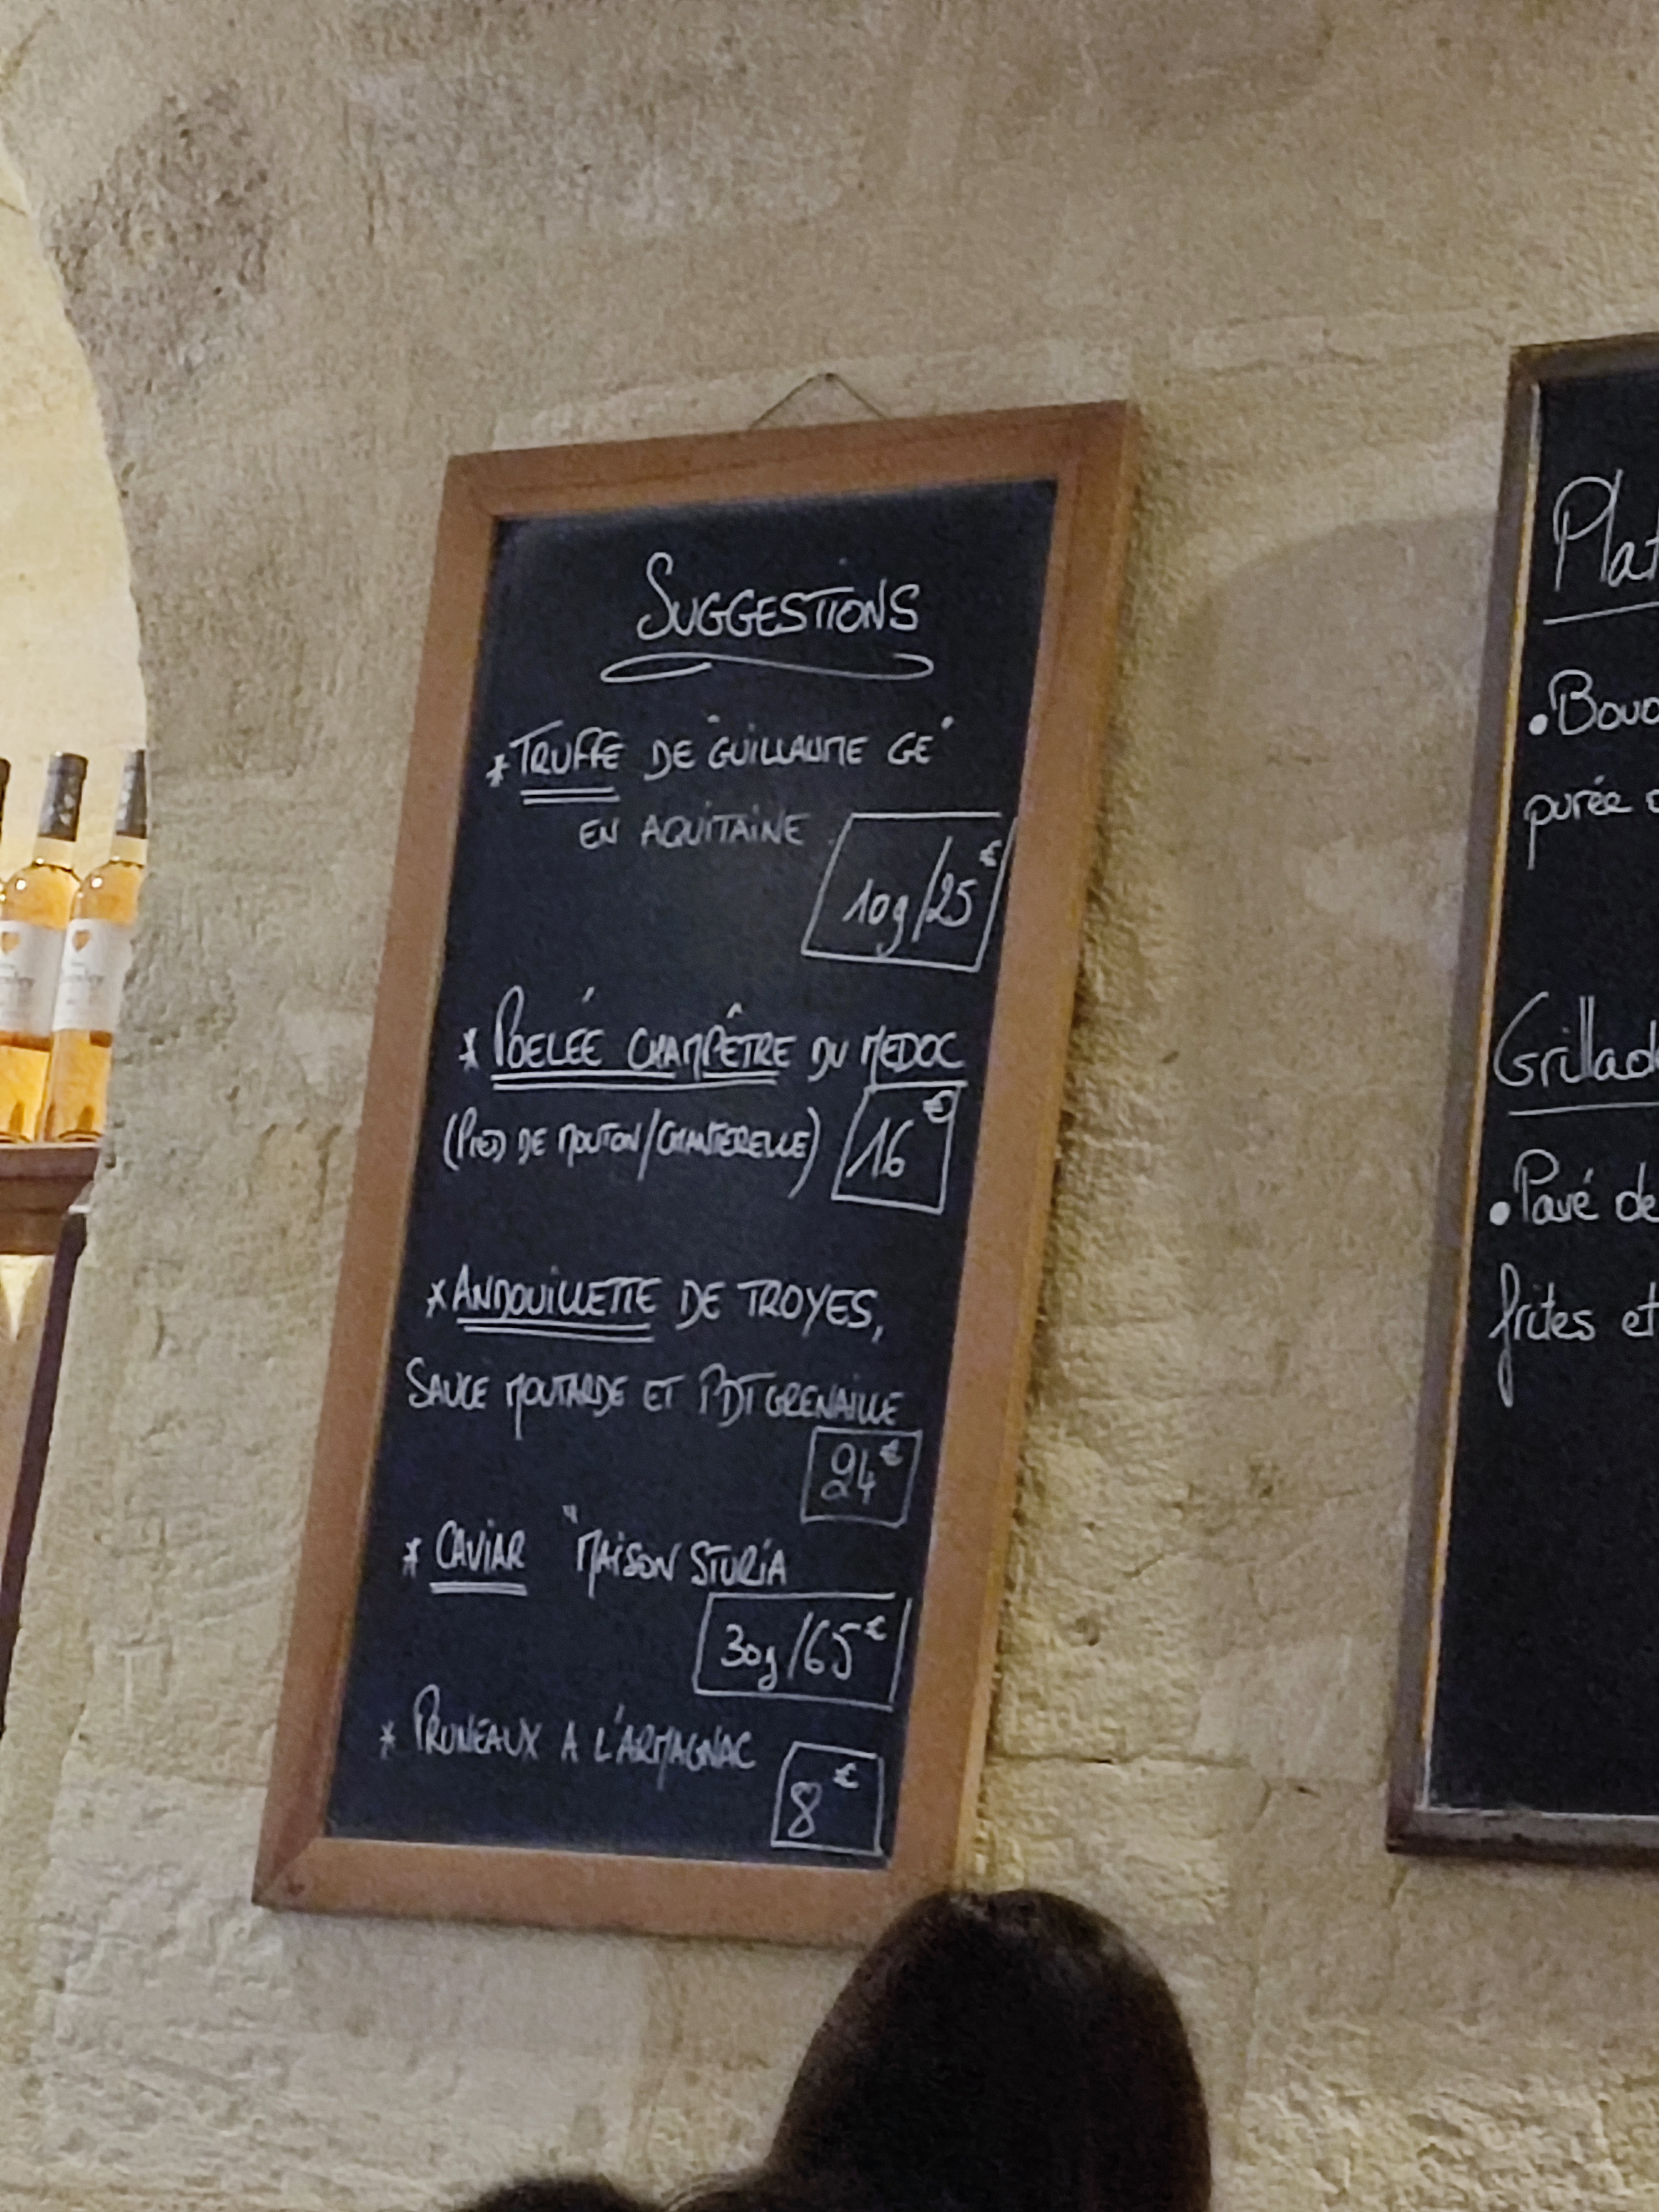 SUGGESTIONS
* TRUFFE DE "GUILLAUME GÉ"
EN AQUITAINE
10g/25€
* POELÉE CHAMPÊTRE DU MEDOC
(PIED DE MOUTON/CHANTERELLE) 16€
* ANDOUILLETTE DE TROYES,
SAUCE MOUTARDE ET PDT GRENAILLE
24€
* CAVIAR "MAISON STURIA
30g/65€
* PRUNEAUX A L'ARMAGNAC
8€
Plat
• Boud
purée
Grillad
• Pavé de
frites et